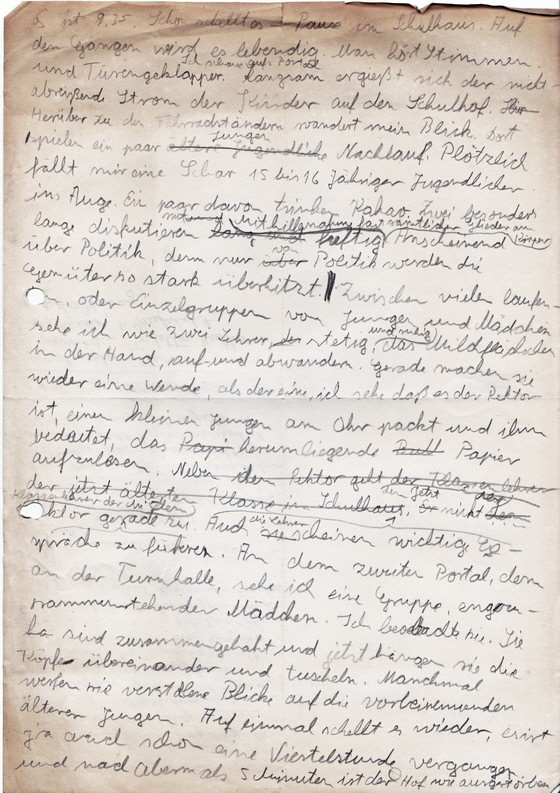 Es ist 9.35. Schon schellt es Pause im Schulhaus. Auf
den Gängen wird es lebendig. Man hört Stimmen
Ich schaue aufs Portal
und Türengeklapper. Langsam ergießt sich der nicht-
abreißende Strom der Kinder auf den Schulhof.
Herüber zu den Fahrradständern wandert mein Blick. Dort
Jungen
spielen ein paar ältere Jugendliche Nachlauf. Plötzlich
fällt mir eine Schar 15 bis 16 jähriger Jugendlicher
ins Auge. Ein paar davon trinken Kakao. Zwei besonders
mit und Mithilfenahme fast sämtlicher Glieder am
lange disputieren lang und heftig Anscheinend Körper
über Politik, denn nur über Politik werden die
Gemüter so stark überhitzt. Zwischen vielen laufen
n, oder Einzelgruppen von Jungen und Mädchen
und ruhig
sehe ich wie zwei Lehrer, der stetig, das Milchfläschchen
in der Hand, auf und abwandern. Gerade machen sie
wieder eine Wende, als der eine, ich sehe daß es der Rektor
ist, einen kleinen Jungen am Ohr packt und ihm
bedeutet, das Papi herumliegende Butt Papier
aufzulesen. Neben dem Rektor geht der Klassenlehrer
der jetzt ältesten Klasse im Schulhaus, dem jetzt nicht
Klassenlehrer der die dem
Rektor gerade zu. Auch die Lehrer sie scheinen wichtig Ge-
spräche zu führen. An dem zweiten Portal, dem
an der Turnhalle, sehe ich eine Gruppe, engzu-
sammenstehender Mädchen. Ich beobachte sie. Sie
ha sind zusammengehakt und jetzt hängen sie die
Köpfe übereinander und tuscheln. Manchmal
werfen sie verstohlene Blicke auf die vorbeikommenden
älteren Jungen. Auf einmal schellt es wieder, es ist
ja auch schon eine Viertelstunde vergangen
und nach abermals 5 Minuten ist der Hof wie ausgestorben